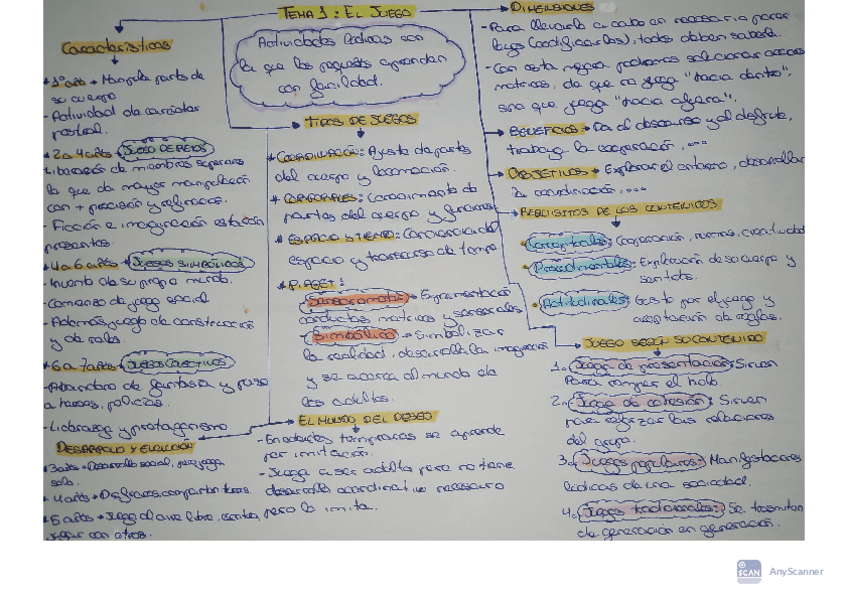 TEMA 1: EL JUEGO
Actividades lúdicas con
la que los pequeños aprenden
con finalidad.
Características
* 1º año → Manipula partes de
su cuerpo.
- Actividad de carácter
postural.
* 2 a 4 años → JUEGO DE RETOS
Liberación de miembros superiores
la que da mayor manipulación
con + precisión y
- Ficción e imaginación están
presentes.
* 4 a 6 años → JUEGOS SIMBÓLICOS
- Invento de su propio mundo.
- Comienzo de juego social
- Además juego de construcción
y de roles.
* 6 a 7 años → JUEGOS COLECTIVOS
- Abandono de fantasía y paso
a tareas, policías.
- Liderazgo y protagonismo
DESARROLLO Y EVOLUCIÓN
* 3 años → Desarrollo social, pero juega
solo.
* 4 años →
* 5 años → Juego al aire libre,
jugar con otros.
TIPOS DE JUEGOS
* COORDINACIÓN: Ajuste de partes
del cuerpo y locomoción.
* CORPORALES: Conocimiento de
partes del cuerpo y funciones
* ESPACIO Y TIEMPO: Conciencia del
espacio y transcurso de tiempo.
* PIAGET:
Sensoriomotor → Experimentación
conductas motrices y sensoriales
Simbólico → Simbolizar
la realidad, desarrolla la imaginación
y se acerca al mundo de
los adultos.
EL MUNDO DEL DESEO
- En edades tempranas se aprende
por imitación.
- Juega a ser adulto pero no tiene
desarrollo coordinativo necesario
pero lo imita.
DIMENSIONES
- Para llevarlo a cabo es necesario poner
leyes (codificarlas), todos deben saberla.
- Con esta mejora podremos solucionar
motrices, de que no juega "hacia dentro",
sino que juega "hacia afuera".
BENEFICIOS → Da el descanso y al disfrute,
trabaja la cooperación, ....
OBJETIVOS → Explorar el entorno, desarrollar
la coordinación, ....
REQUISITOS DE LOS CONTENIDOS
Conceptuales: Cooperación, normas, creatividad
Procedimentales: Exploración de su cuerpo y
sentidos.
Actitudinales: Gusto por el juego y
aceptación de reglas.
JUEGO SEGÚN SU CONTENIDO
1. Juego de presentación: Sirven
Para romper el hielo.
2. Juego de cohesión: Sirven
para reforzar las relaciones
del grupo.
3. Juegos populares: Manifestaciones
lúdicas de una sociedad.
4. Juegos tradicionales: Se trasmiten
de generación en generación.
SCAN
AnyScanner